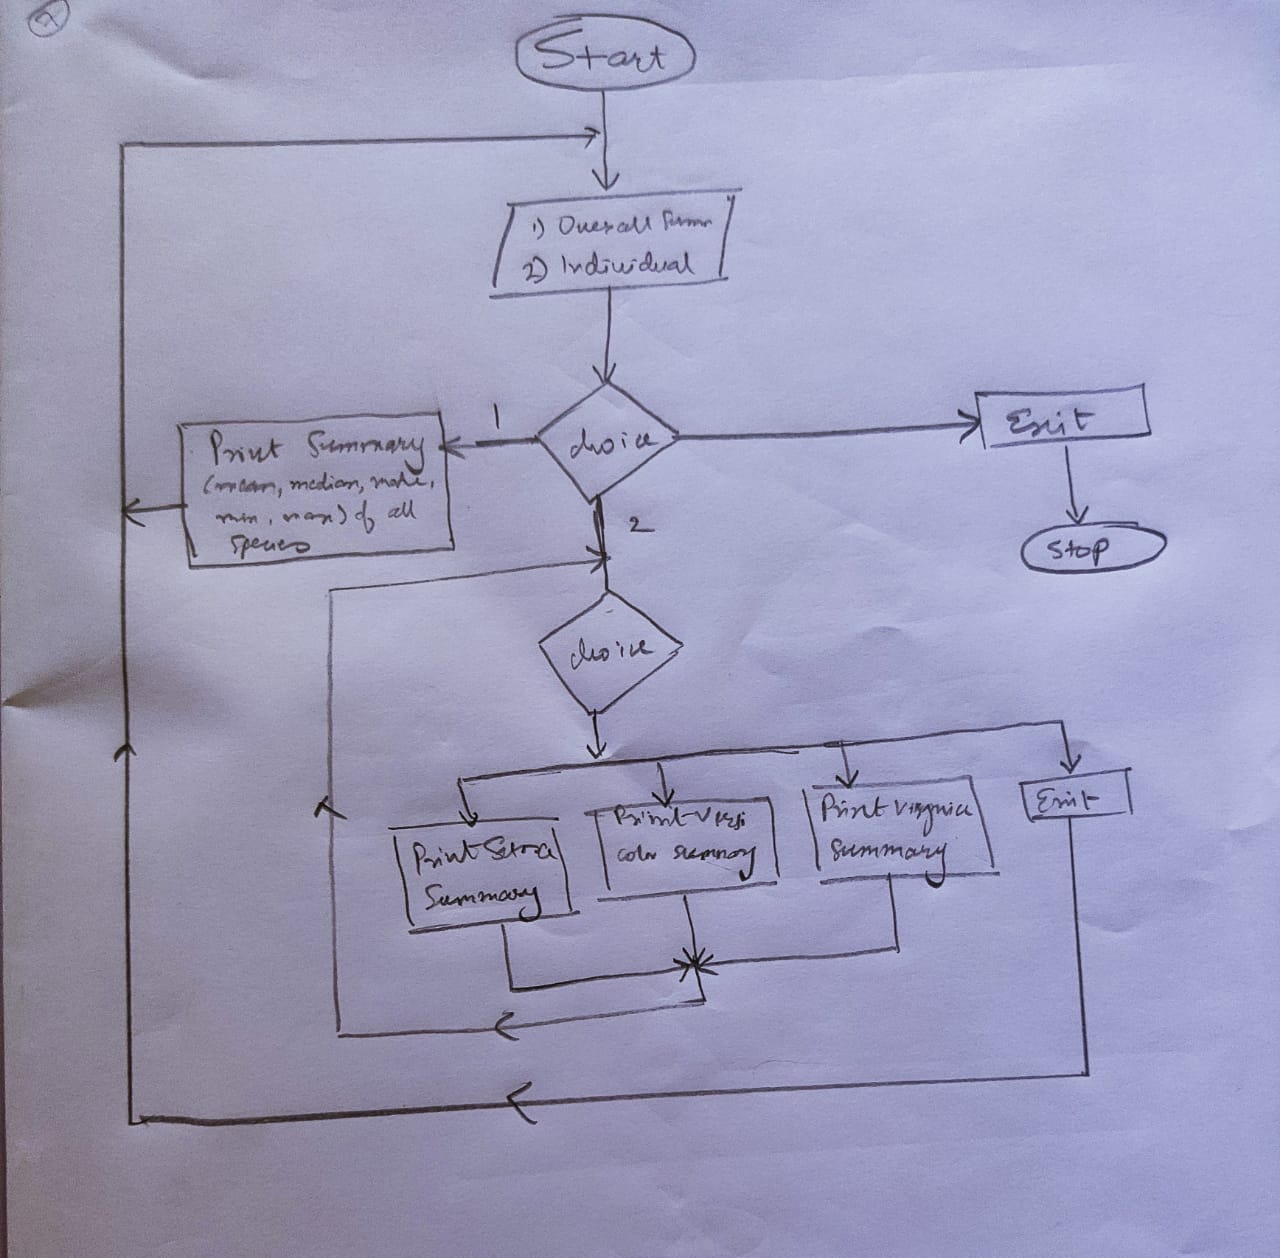 2
Start
1) Overall Summ
2) Individual
choice
1
Print Summary
(mean, median, mode,
min, max) of all
species
Exit
Stop
2
choice
Print Setosa
Summary
Print Versi
color summary
Print Virginica
summary
Exit